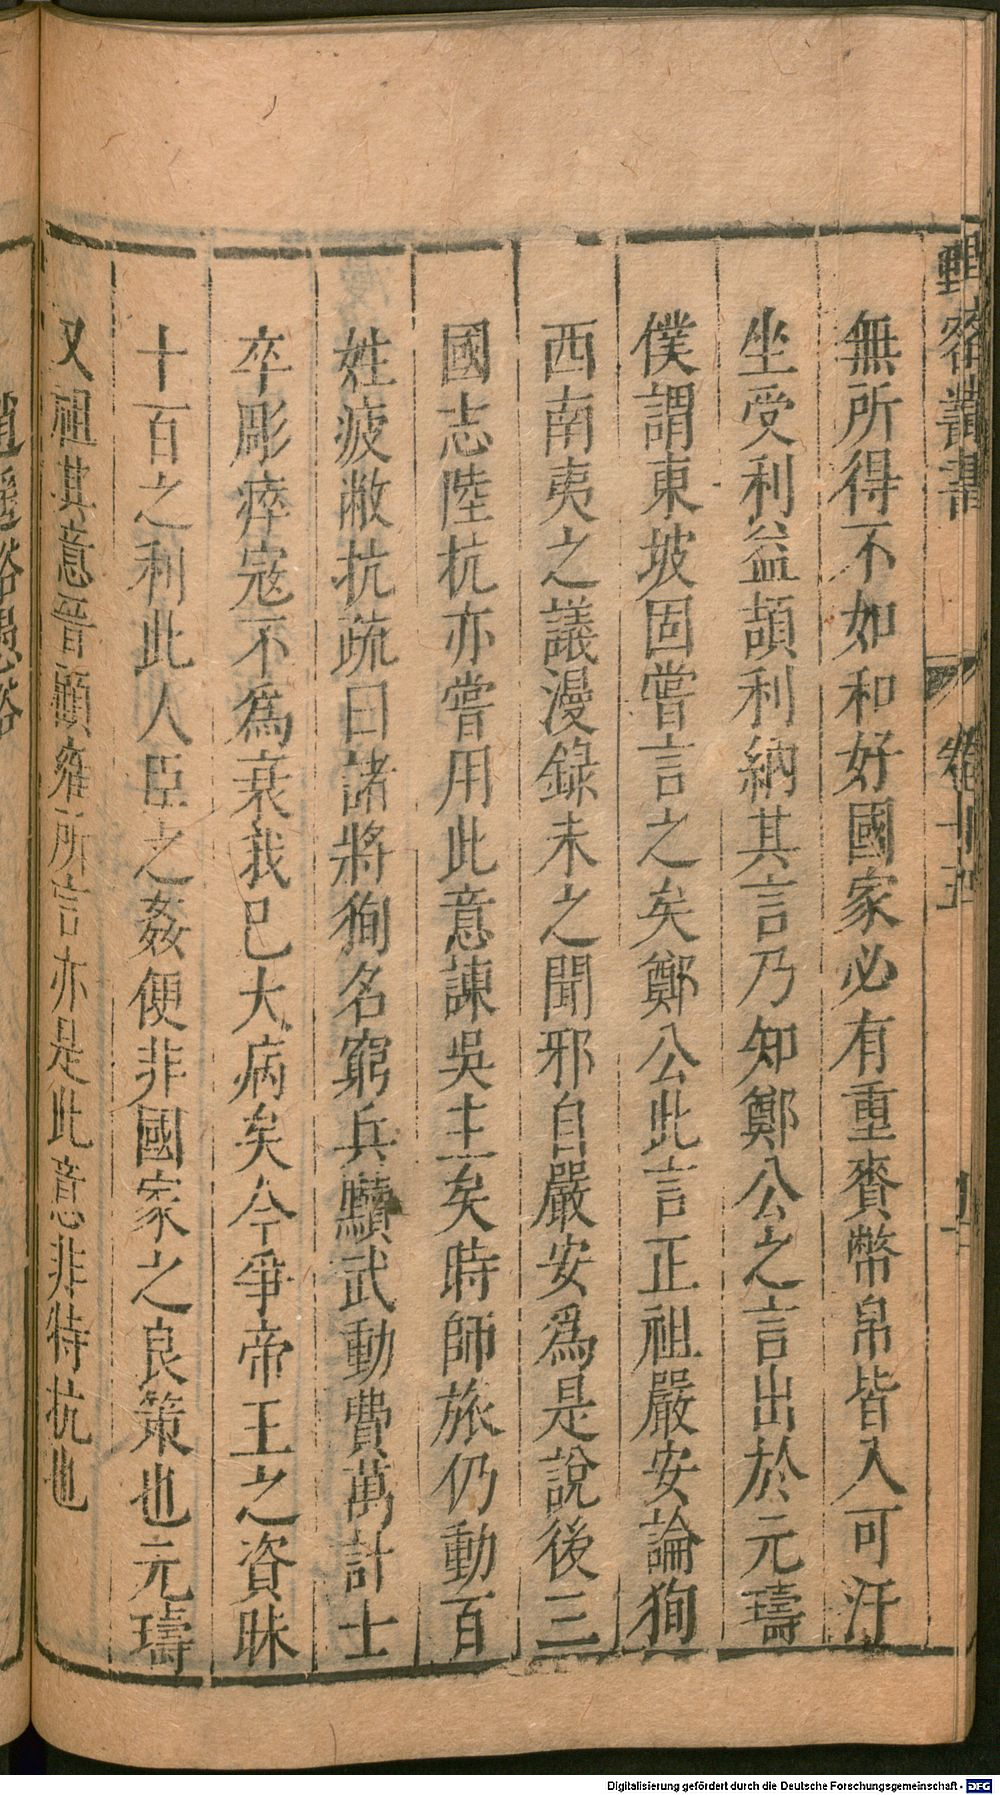 野客叢書
卷十五
無所得不如和好國家必有重賚幣帛皆入可汗
坐受利益頡利納其言乃知鄭公之言出於元璹
僕謂東坡固嘗言之矣鄭公此言正祖嚴安論狥
西南夷之議漫錄未之聞邪自嚴安爲是說後三
國志陸抗亦嘗用此意諫吳主矣時師旅仍動百
姓疲敝抗疏曰諸將狥名窮兵黷武動費萬計士
卒彫瘁寇不爲衰我已大病矣今爭帝王之資昧
十百之利此人臣之姦便非國家之良策也元璹
又祖其意晉顧雍所言亦是此意非特抗也
Digitalisierung gefördert durch die Deutsche Forschungsgemeinschaft - DFG